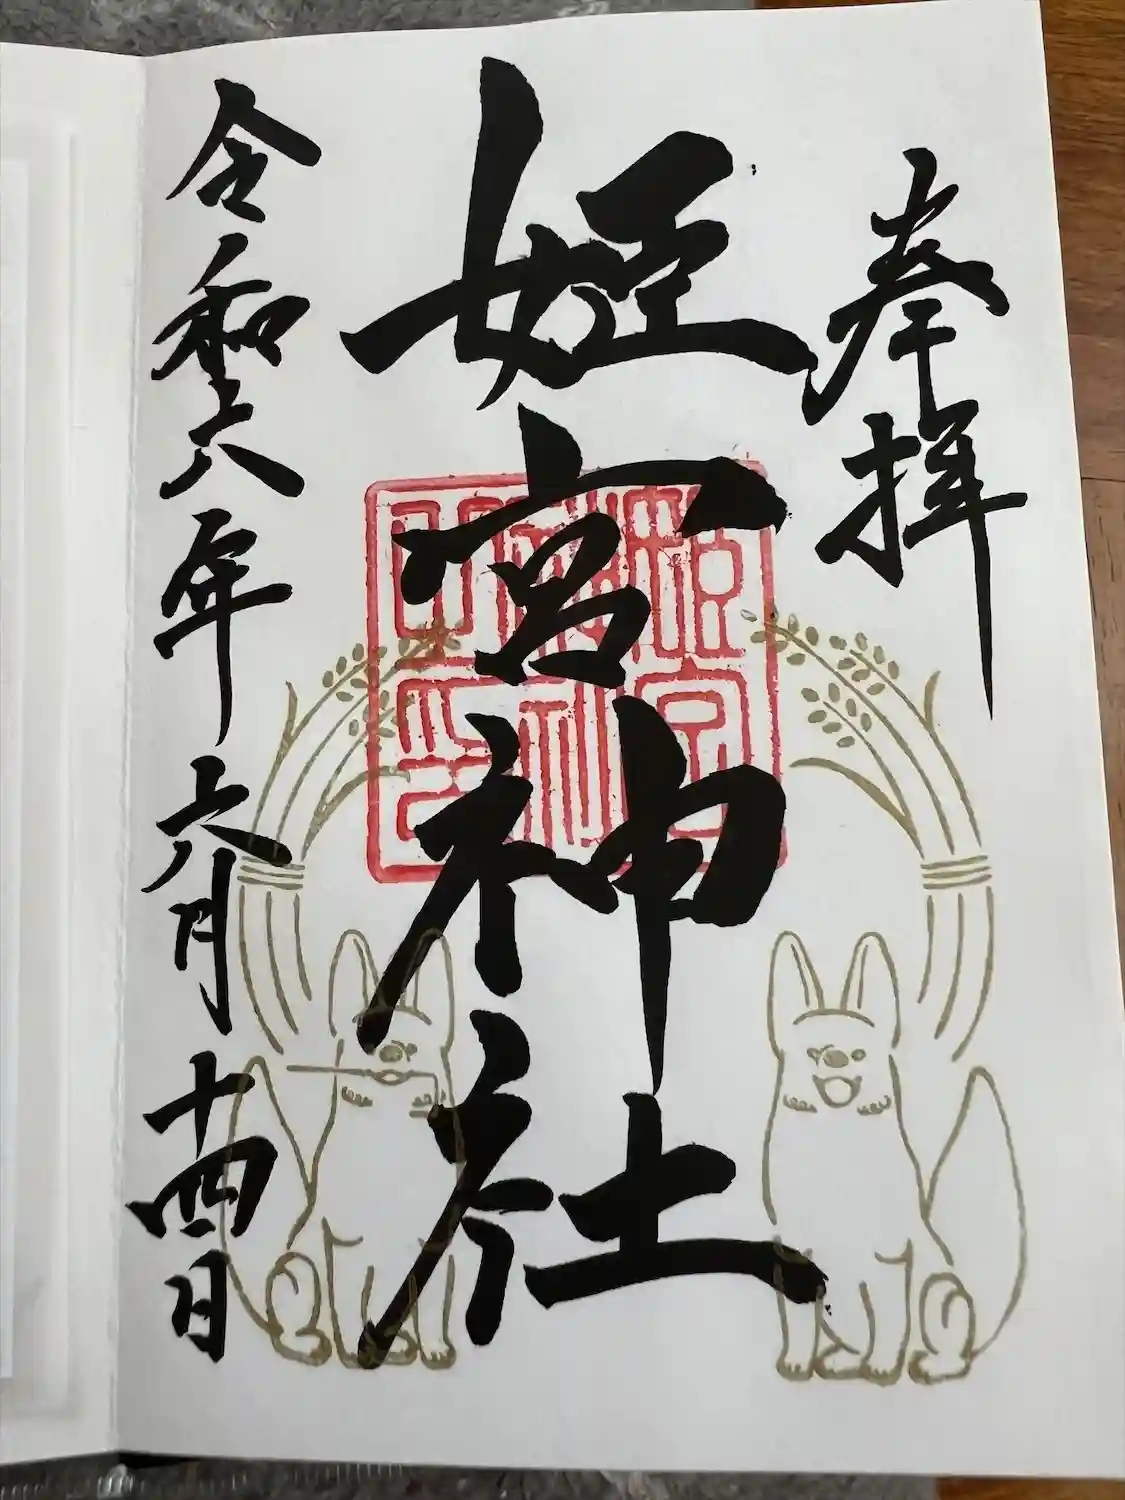 奉拝
姫宮神社
姫宮神社御印
令和六年六月十四日